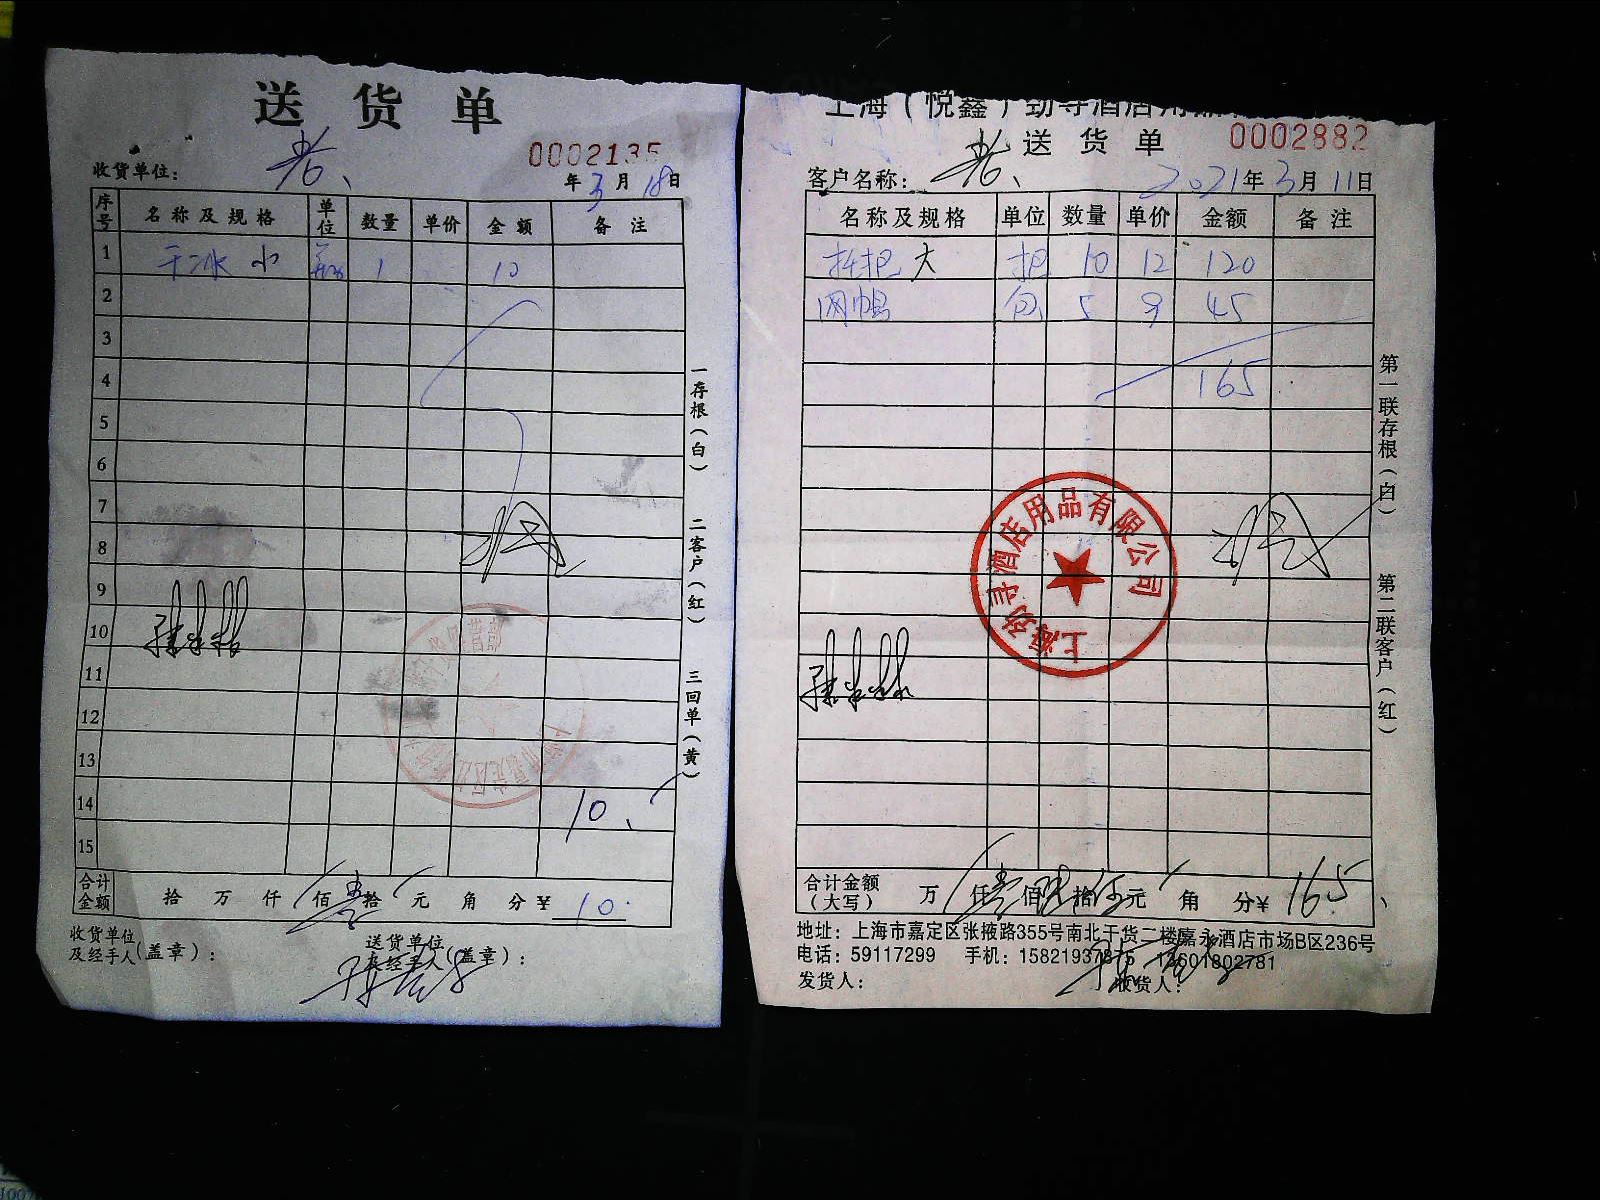 送货单
0002135
收货单位：老、
年3月18日
序号 名称及规格 单位 数量 单价 金额 备注
1 干冰 小 1 10
2
3
4
5
6
7
8
9
10
11
12
13
14 10、
15
合计金额 拾 万 仟 佰 壹拾 元 角 分 ¥ 10.
收货单位及经手人（盖章）：
送货单位及经手人（盖章）：
一存根（白） 二客户（红） 三回单（黄）
上海（悦鑫）劲寻酒店用品
送货单
0002882
客户名称：老、
2021年3月11日
名称及规格 单位 数量 单价 金额 备注
托把 大 把 10 12 120
网帽 包 5 9 45
165
上海劲寻酒店用品有限公司
合计金额（大写） 万 仟 壹佰 陆拾 伍元 角 分¥ 165、
地址：上海市嘉定区张掖路355号南北干货二楼嘉永酒店市场B区236号
电话：59117299 手机：15821937875 13601802781
发货人：
收货人：
第一联存根（白） 第二联客户（红）